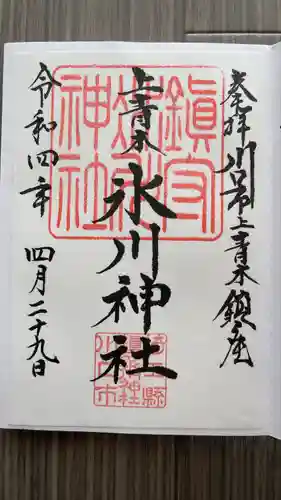 奉拝 川口市上青木鎮座
上青木 氷川神社
令和四年 四月二十九日
鎮守氷川神社
埼玉縣川口市